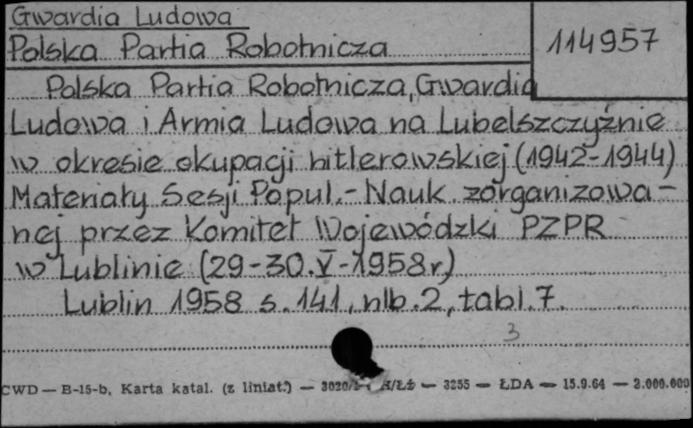 Gwardia Ludowa
Polska Partia Robotnicza
114957
Polska Partia Robotnicza, Gwardia
Ludowa i Armia Ludowa na Lubelszczyźnie
w okresie okupacji hitlerowskiej (1942-1944)
Materiały Sesji Popul.-Nauk. zorganizowa-
nej przez Komitet Wojewódzki PZPR
w Lublinie (29-30.V-1958r)
Lublin 1958 s. 141, nlb. 2, tabl. 7.
3
CWD — B-15-b, Karta katal. (z liniat.) — 3020/ /Łż — 3255 — ŁDA — 15.9.64 — 2.000.000